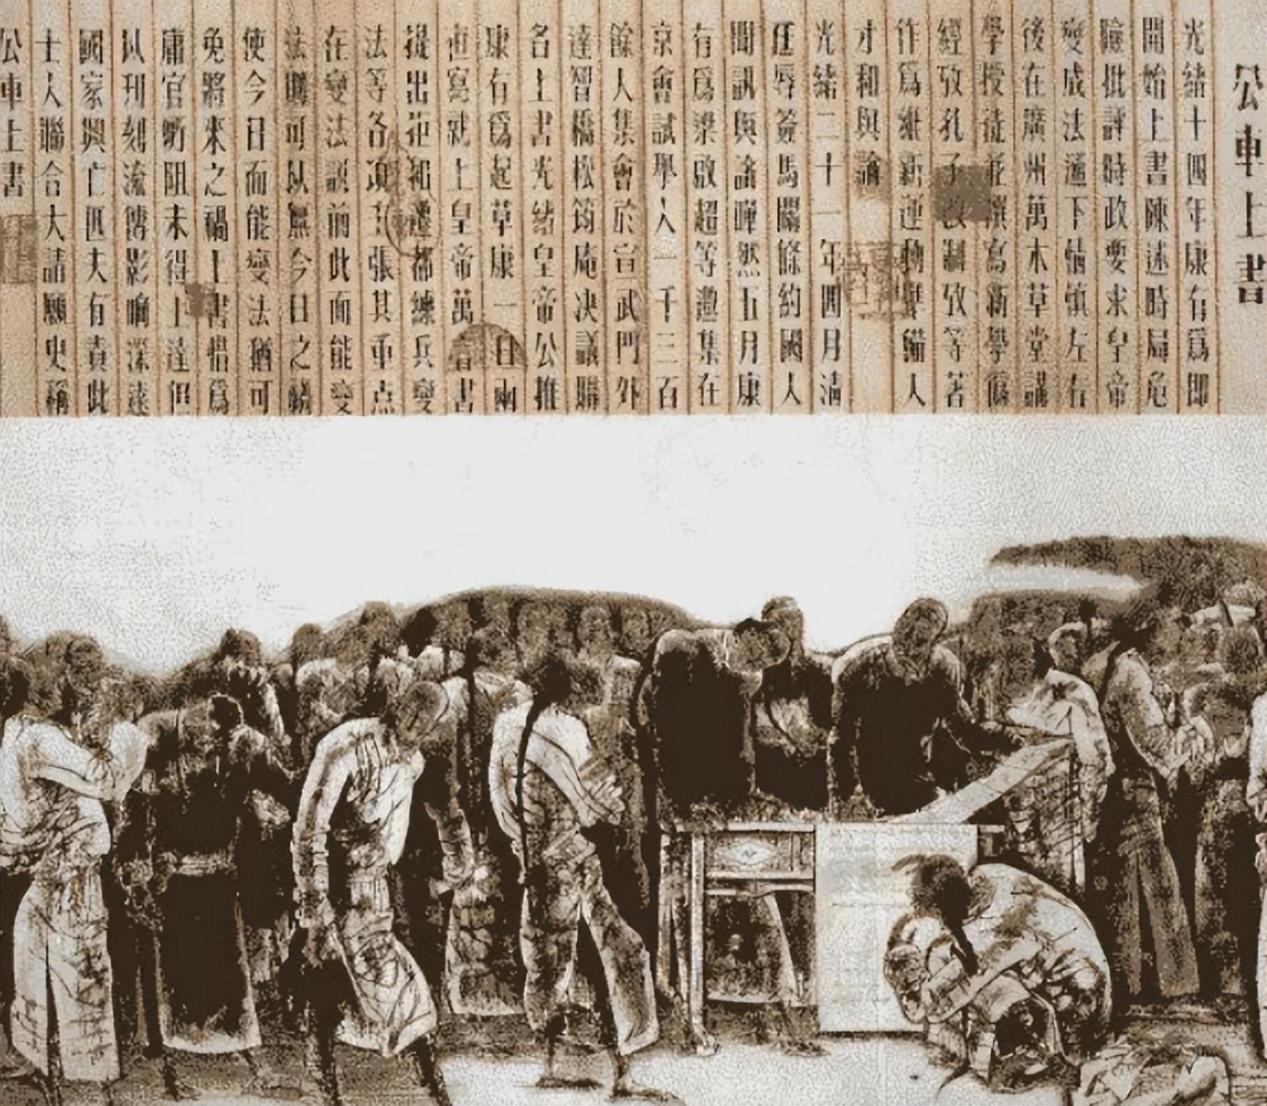 公車上書
光緒十四年康有爲即
開始上書陳述時局危
險批評時政要求皇帝
變成法通下情慎左右
後在廣州萬木草堂講
學授徒並撰寫新學僞
經攷孔子改制攷等著
作爲維新運動準備人
才和與論
光緒二十一年四月清
廷辱簽馬關條約國人
聞訊與論曄然五月康
有爲梁啟超等邀集在
京會試舉人一千三百
餘人集會於宣武門外
達智橋松筠庵决議聯
名上書光緒皇帝公推
康有爲起草康一日兩
夜寫就上皇帝萬言書
提出拒和遷都練兵變
法等各項主張其重点
在變法前此而能變
法可以無今日之禍
使今日而能變法猶可
免將來之禍上書惜爲
庸官所阻未得上達但
以刊刻流傳影响深遠
國家興亡匹夫有責此
士人聯合大請願史稱
公車上書